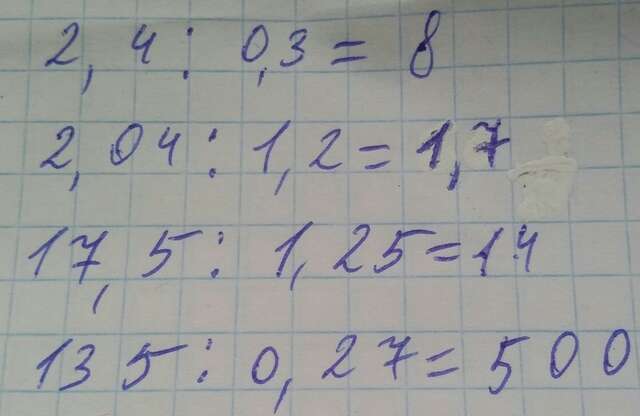 2,4 : 0,3 = 8
2,04 : 1,2 = 1,7
17,5 : 1,25 = 14
135 : 0,27 = 500